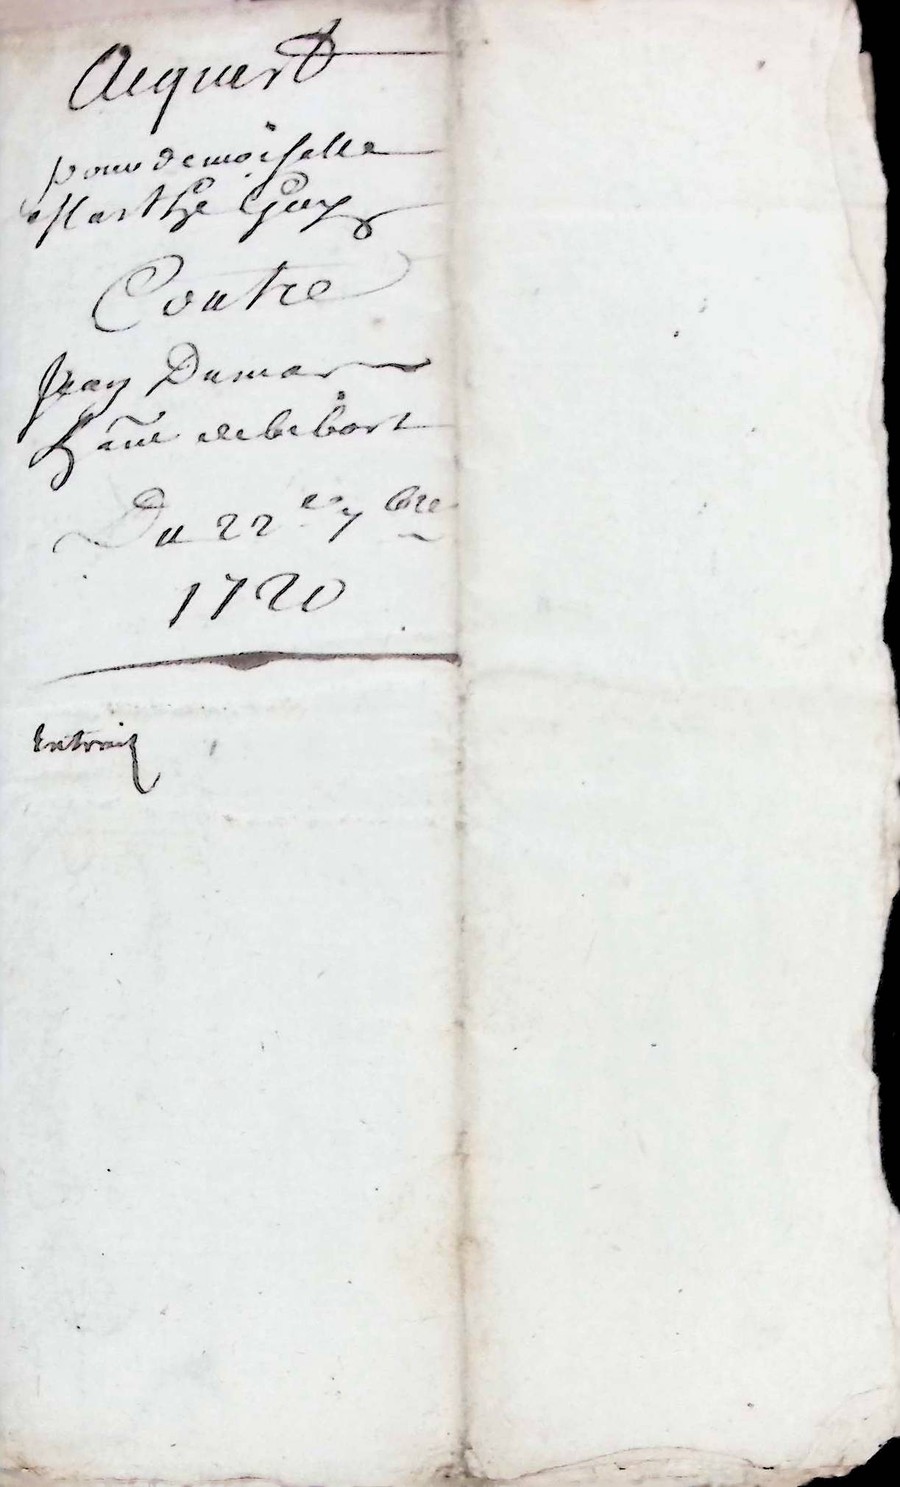 Acquest
pour demoiselle
Marthe Guy
Contre
Jean Dumas
de bibort
Du 22e 7bre
1720
Extrait